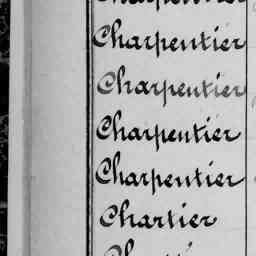 Charpentier
Charpentier
Charpentier
Charpentier
Charpentier
Chartier